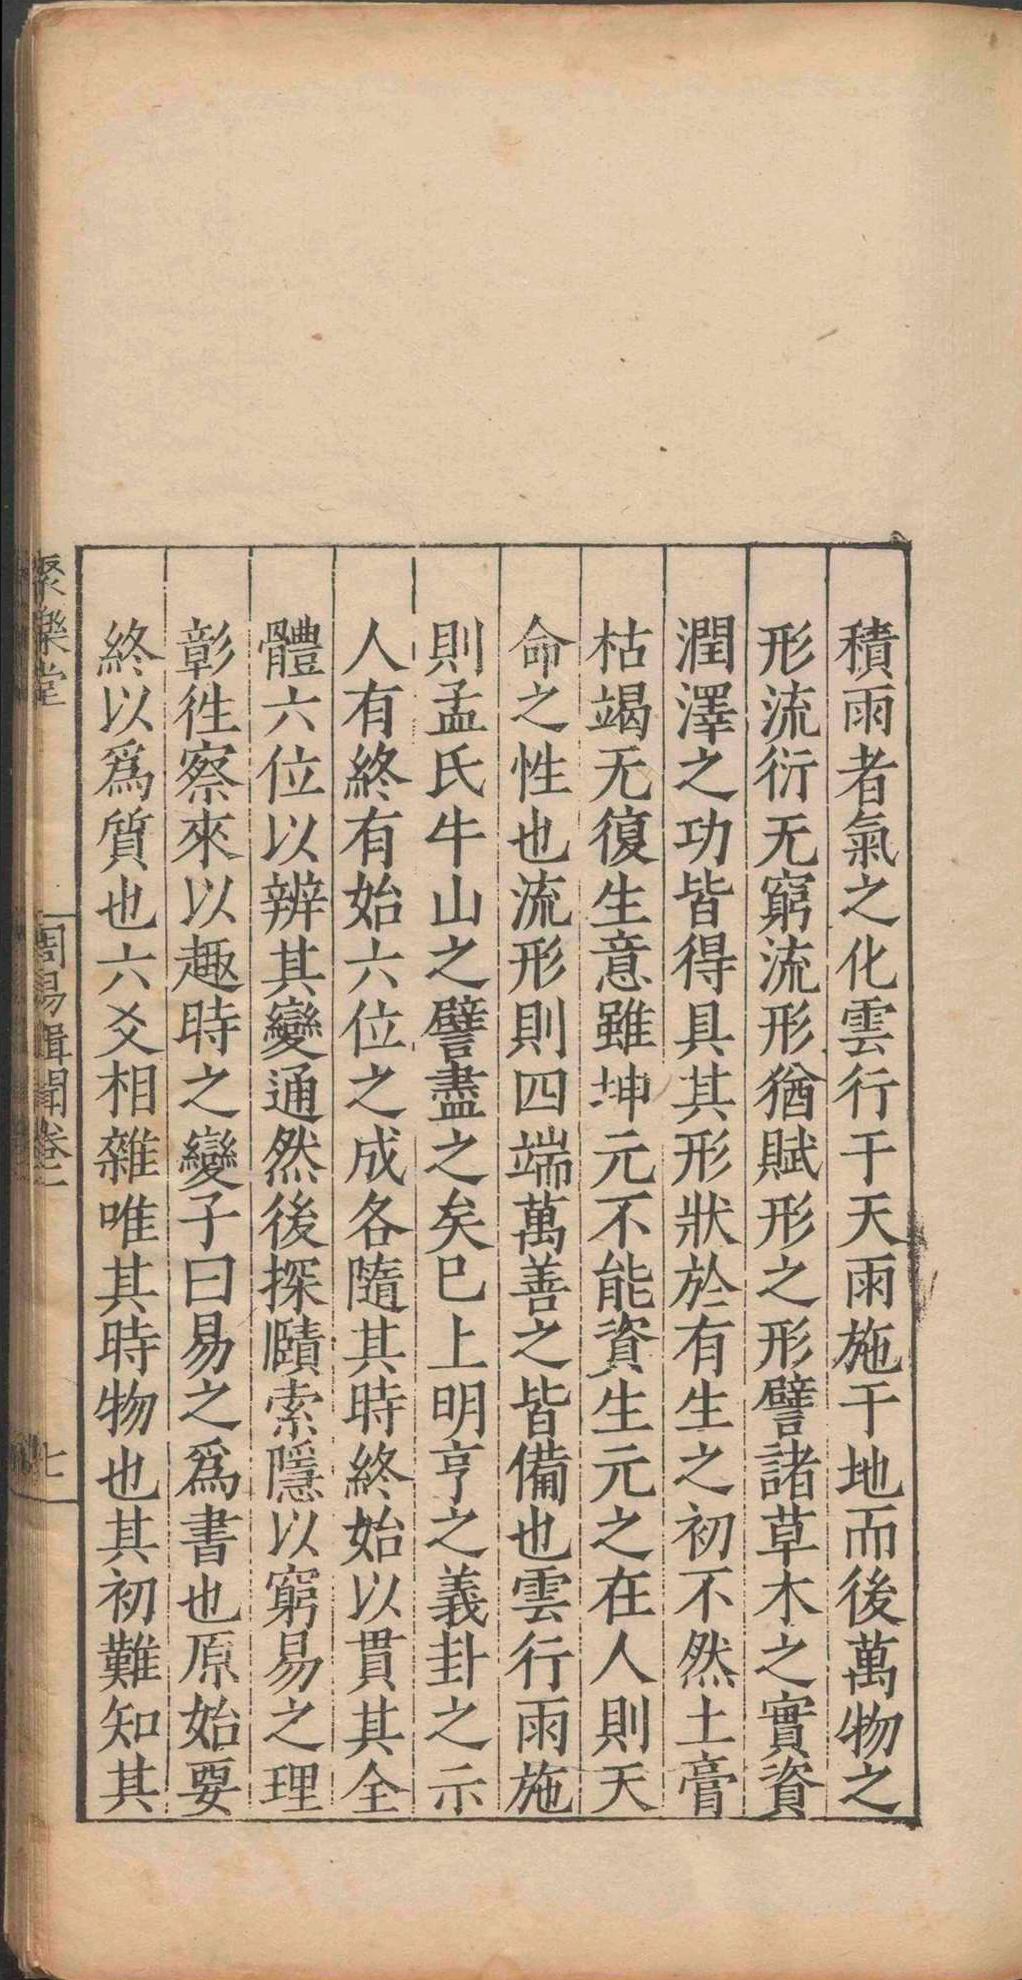 積雨者氣之化雲行于天雨施于地而後萬物之
形流衍无窮流形猶賦形之形譬諸草木之實資
潤澤之功皆得具其形狀於有生之初不然土膏
枯竭无復生意雖坤元不能資生元之在人則天
命之性也流形則四端萬善之皆備也雲行雨施
則孟氏牛山之譬盡之矣巳上明亨之義卦之示
人有終有始六位之成各隨其時終始以貫其全
體六位以辨其變通然後探賾索隱以窮易之理
彰徃察來以趣時之變子曰易之爲書也原始要
終以爲質也六爻相雜唯其時物也其初難知其
聚樂堂
周易輯聞卷一
七